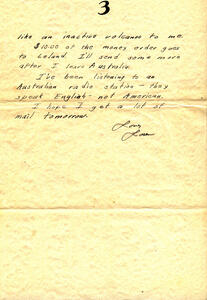 3
like an inactive volcano to me.
$10.00 of the money order goes
to Leland. I'll send some more
after I leave Australia.
I've been listening to an
Australian radio station - they
speak English - not American.
I hope I get a lot of
mail tomorrow.
Love